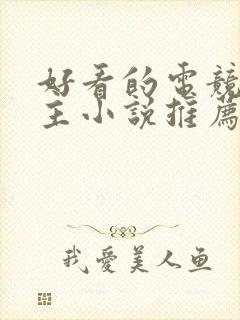 好看的電競
主小說推薦
我愛美人鱼